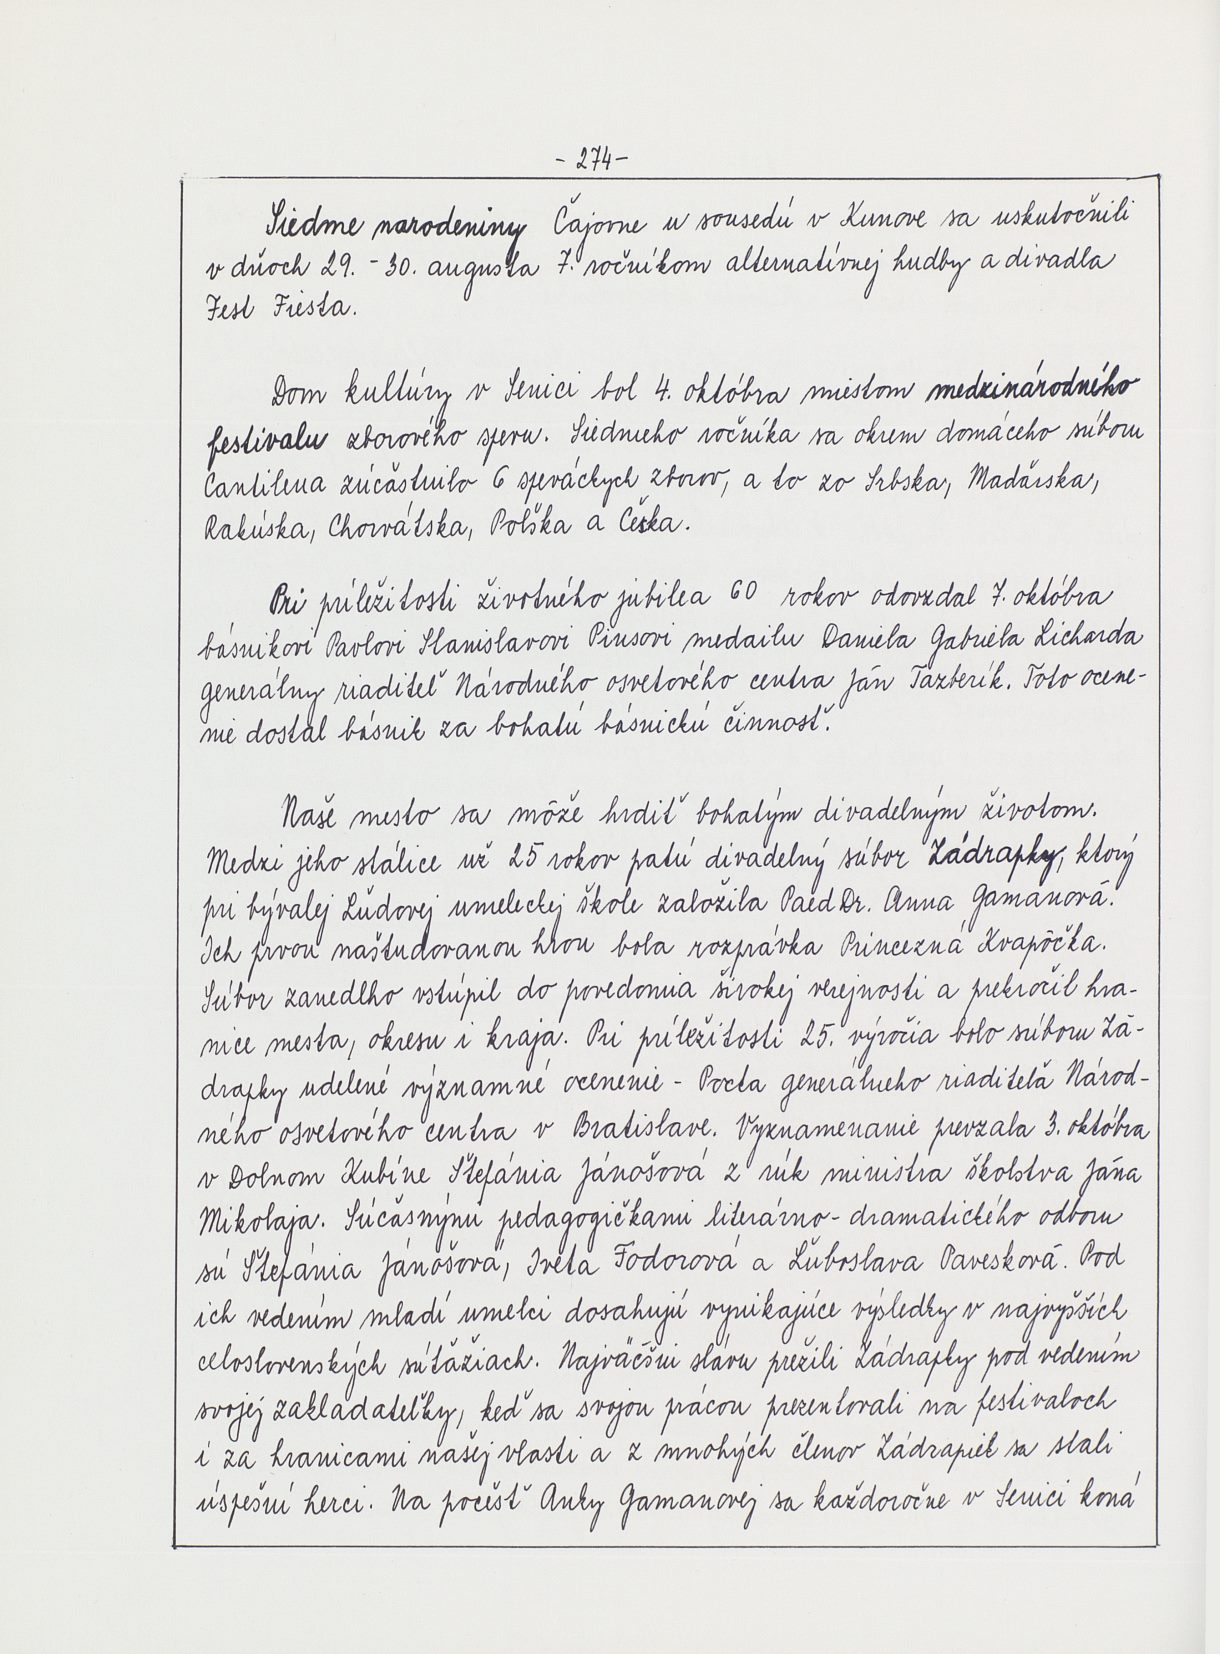 - 274 -
Siedme narodeniny Čajovne u sousedú v Kunove sa uskutočnili
v dňoch 29. - 30. augusta 7. ročníkom alternatívnej hudby a divadla
Fest Fiesta.
Dom kultúry v Senici bol 4. októbra miestom medzinárodného
festivalu zborového spevu. Siedmeho ročníka sa okrem domáceho súboru
Cantilena zúčastnilo 6 speváckych zborov, a to zo Srbska, Maďarska,
Rakúska, Chorvátska, Poľska a Česka.
Pri príležitosti životného jubilea 60 rokov odovzdal 7. októbra
básnikovi Pavlovi Stanislavovi Piusovi medailu Daniela Gabriela Licharda
generálny riaditeľ Národného osvetového centra Ján Tazberík. Toto ocene-
nie dostal básnik za bohatú básnickú činnosť.
Naše mesto sa môže hrdiť bohatým divadelným životom.
Medzi jeho stálice už 25 rokov patrí divadelný súbor Zádrapky, ktorý
pri bývalej Ľudovej umeleckej škole založila PaedDr. Anna Gamanová.
Ich prvou naštudovanou hrou bola rozprávka Princezná Kvapôčka.
Súbor zanedlho vstúpil do povedomia širokej verejnosti a prekročil hra-
nice mesta, okresu i kraja. Pri príležitosti 25. výročia bolo súboru Zá-
drapky udelené významné ocenenie - Pocta generálneho riaditeľa Národ-
ného osvetového centra v Bratislave. Vyznamenanie prevzala 3. októbra
v Dolnom Kubíne Štefánia Jánošová z rúk ministra školstva Jána
Mikolaja. Súčasnými pedagogičkami literárno-dramatického odboru
sú Štefánia Jánošová, Iveta Fodorová a Ľuboslava Pavesková. Pod
ich vedením mladí umelci dosahujú vynikajúce výsledky v najvyšších
celoslovenských súťažiach. Najväčšiu slávu prežili Zádrapky pod vedením
svojej zakladateľky, keď sa svojou prácou prezentovali na festivaloch
i za hranicami našej vlasti a z mnohých členov Zádrapiek sa stali
úspešní herci. Na počesť Anky Gamanovej sa každoročne v Senici koná